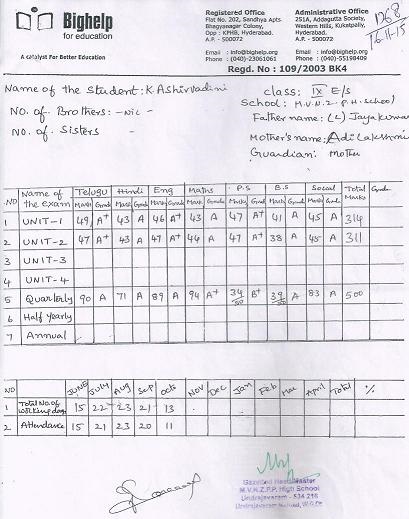 Bighelp
for education
A catalyst For Better Education
Registered Office
Flat No. 202, Sandhya Apts
Bhagyanagar Colony,
Opp : KPHB, Hyderabad.
A.P. - 500072
Email : info@bighelp.org
Phone : (040)-23061061
Administrative Office
251A, Addagutta Society,
Western Hills, Kukatpally,
Hyderabad.
A.P. - 500072
Email : info@bighelp.org
Phone : (040)-55198409
Regd. No : 109/2003 BK4
D68
16-11-15
Name of the Student: K Ashirvadini
NO. of Brothers: -NIL-
NO. of Sisters -
class: IX E/S
School: M.V.N.Z.P.H.School
Father name: (L) Jayakumar
Mother's name: Adi Lakshmi
Guardian: Mother
NO Name of the exam Telugu Hindi Eng Maths P.S B.S Social Total Marks Grade
Mark Grade Mark Grade Mark Grade Mark Grade Marks Grade Marks Grade Marks Grade
1 UNIT-1 49 A+ 43 A 46 A+ 43 A 47 A+ 41 A 45 A 314
2 UNIT-2 47 A+ 43 A 47 A+ 44 A 47 A+ 38 A 45 A 311
3 UNIT-3
4 UNIT-4
5 Quarterly 90 A 71 A 89 A 94 A+ 34/50 B+ 39/50 A 83 A 500
6 Half Yearly
7 Annual
NO JUNE JULY Aug Sep Octs NOV Dec Jan Feb Mar April Total %
1 Total No. of Working days 15 22 23 21 13
2 Attendance 15 21 23 20 11
Gazetted Head Master
M.V.N.Z.P.P. High School
Undrajavaram - 534 216
Undrajavaram Mandal, W.G.Dt.